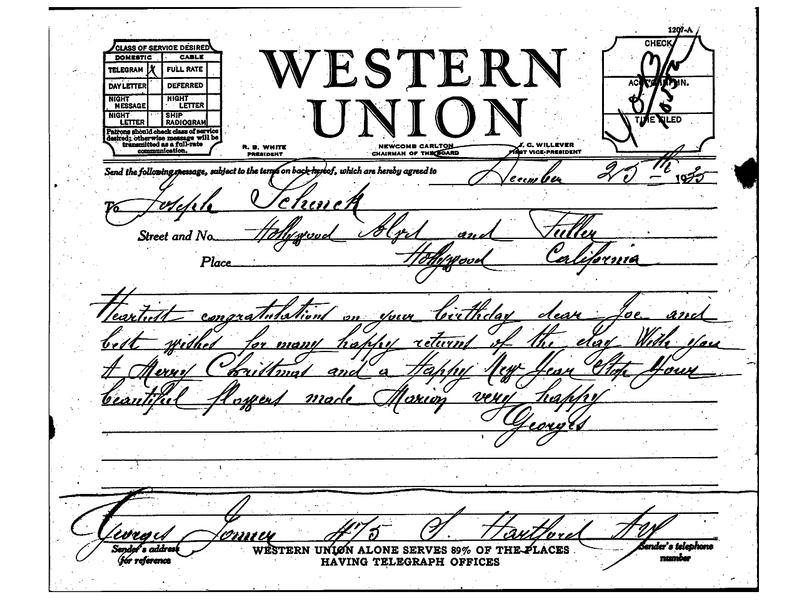 1207-A
CLASS OF SERVICE DESIRED
DOMESTIC CABLE
TELEGRAM X FULL RATE
DAY LETTER DEFERRED
NIGHT MESSAGE NIGHT LETTER
NIGHT LETTER SHIP RADIOGRAM
Patrons should check class of service
desired; otherwise message will be
transmitted as a full-rate
communication.
WESTERN
UNION
R. B. WHITE
PRESIDENT
NEWCOMB CARLTON
CHAIRMAN OF THE BOARD
J. C. WILLEVER
FIRST VICE-PRESIDENT
CHECK
TIME FILED
Send the following message, subject to the terms on back hereof, which are hereby agreed to
December 25th 1935
To Joseph Schenck
Street and No. Hollywood Blvd and Fuller
Place Hollywood California
Heartiest congratulations on your birthday dear Joe and
best wishes for many happy returns of the day Wish you
A Merry Christmas and a Happy New Year Stop Your
beautiful flowers made Marion very happy
Georges
Georges 475 S. Hartford Av
Sender's address
for reference
WESTERN UNION ALONE SERVES 89% OF THE PLACES
HAVING TELEGRAPH OFFICES
Sender's telephone
number